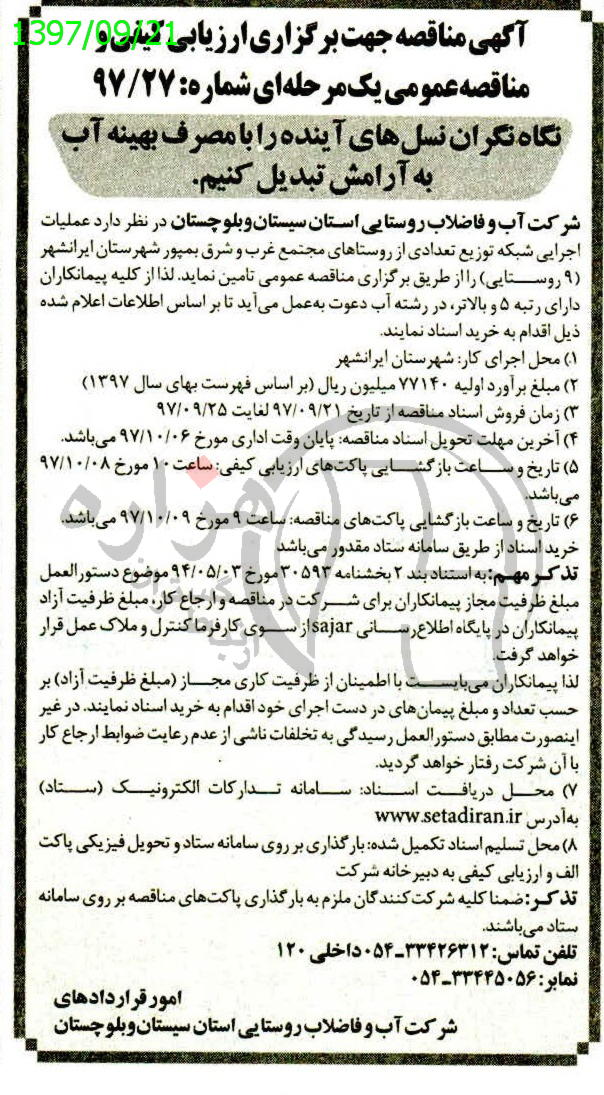 1397/09/21
آگهی مناقصه جهت برگزاری ارزیابی کیفی و
مناقصه عمومی یک مرحله‌ای شماره: ۹۷/۲۷
نگاه نگران نسل‌های آینده را با مصرف بهینه آب
به آرامش تبدیل کنیم.
شرکت آب و فاضلاب روستایی استان سیستان وبلوچستان در نظر دارد عملیات
اجرایی شبکه توزیع تعدادی از روستاهای مجتمع غرب و شرق بمپور شهرستان ایرانشهر
(۹ روستایی) را از طریق برگزاری مناقصه عمومی تامین نماید. لذا از کلیه پیمانکاران
دارای رتبه ۵ و بالاتر، در رشته آب دعوت به‌عمل می‌آید تا بر اساس اطلاعات اعلام شده
ذیل اقدام به خرید اسناد نمایند.
۱) محل اجرای کار: شهرستان ایرانشهر
۲) مبلغ برآورد اولیه ۷۷۱۴۰ میلیون ریال (بر اساس فهرست بهای سال ۱۳۹۷)
۳) زمان فروش اسناد مناقصه از تاریخ ۹۷/۰۹/۲۱ لغایت ۹۷/۰۹/۲۵
۴) آخرین مهلت تحویل اسناد مناقصه: پایان وقت اداری مورخ ۹۷/۱۰/۰۶ می‌باشد.
۵) تاریخ و ساعت بازگشایی پاکت‌های ارزیابی کیفی: ساعت ۱۰ مورخ ۹۷/۱۰/۰۸
می‌باشد.
۶) تاریخ و ساعت بازگشایی پاکت‌های مناقصه: ساعت ۹ مورخ ۹۷/۱۰/۰۹ می‌باشد.
خرید اسناد از طریق سامانه ستاد مقدور می‌باشد
تذکر مهم: به استناد بند ۲ بخشنامه ۳۰۵۹۳ مورخ ۹۴/۰۵/۰۳ موضوع دستورالعمل
مبلغ ظرفیت مجاز پیمانکاران برای شرکت در مناقصه و ارجاع کار، مبلغ ظرفیت آزاد
پیمانکاران در پایگاه اطلاع‌رسانی sajar از سوی کارفرما کنترل و ملاک عمل قرار
خواهد گرفت.
لذا پیمانکاران می‌بایست با اطمینان از ظرفیت کاری مجاز (مبلغ ظرفیت آزاد) بر
حسب تعداد و مبلغ پیمان‌های در دست اجرای خود اقدام به خرید اسناد نمایند. در غیر
اینصورت مطابق دستورالعمل رسیدگی به تخلفات ناشی از عدم رعایت ضوابط ارجاع کار
با آن شرکت رفتار خواهد گردید.
۷) محل دریافت اسناد: سامانه تدارکات الکترونیک (ستاد)
به‌آدرس www.setadiran.ir
۸) محل تسلیم اسناد تکمیل شده: بارگذاری بر روی سامانه ستاد و تحویل فیزیکی پاکت
الف و ارزیابی کیفی به دبیرخانه شرکت
تذکر: ضمنا کلیه شرکت‌کنندگان ملزم به بارگذاری پاکت‌های مناقصه بر روی سامانه
ستاد می‌باشند.
تلفن تماس: ۳۳۴۲۶۳۱۲-۰۵۴ داخلی ۱۲۰
نمابر: ۳۳۴۴۵۰۵۶-۰۵۴
امور قراردادهای
شرکت آب و فاضلاب روستایی استان سیستان وبلوچستان
هزاره